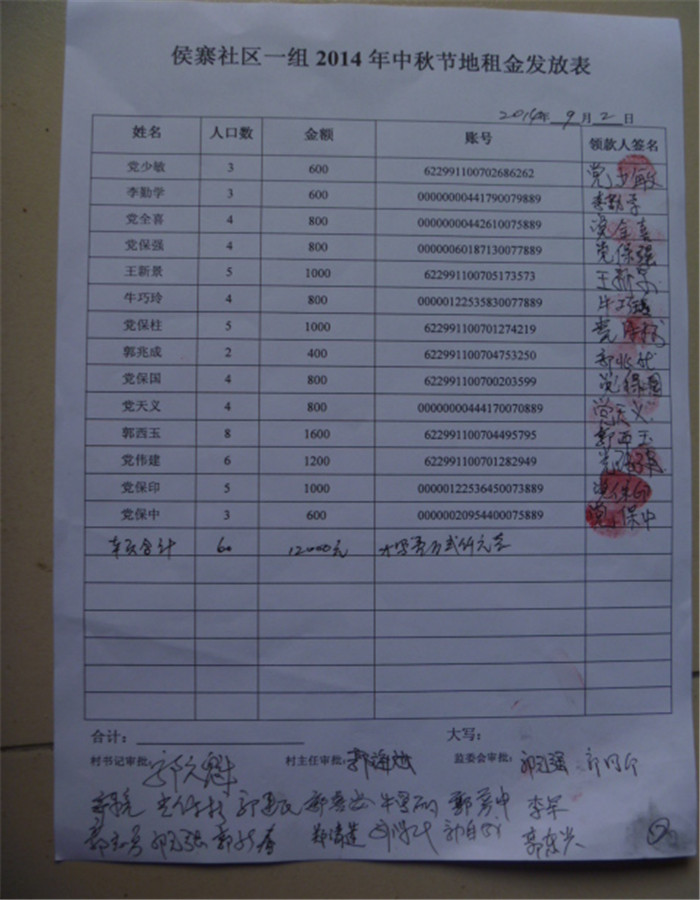 侯寨社区一组 2014 年中秋节地租金发放表
2014年 9 月 2 日
姓名 人口数 金额 账号 领款人签名
党少敏 3 600 622991100702686262 党少敏
李勤学 3 600 00000000441790079889 李勤学
党全喜 4 800 00000000442610075889 党全喜
党保强 4 800 00000060187130077889 党保强
王新景 5 1000 622991100705173573 王新景
牛巧玲 4 800 00000122535830077889 牛巧玲
党保柱 5 1000 622991100701274219 党保柱
郭兆成 2 400 622991100704753250 郭兆成
党保国 4 800 622991100700203599 党保国
党天义 4 800 00000000444170070889 党天义
郭西玉 8 1600 622991100704495795 郭西玉
党伟建 6 1200 622991100701282949
党保印 5 1000 00000122536450073889 党保印
党保中 3 600 00000020954400075889 党保中
本页合计 60 12000元 大写壹万贰仟元整
合计： 大写：
村书记审批： 村主任审批： 监委会审批：